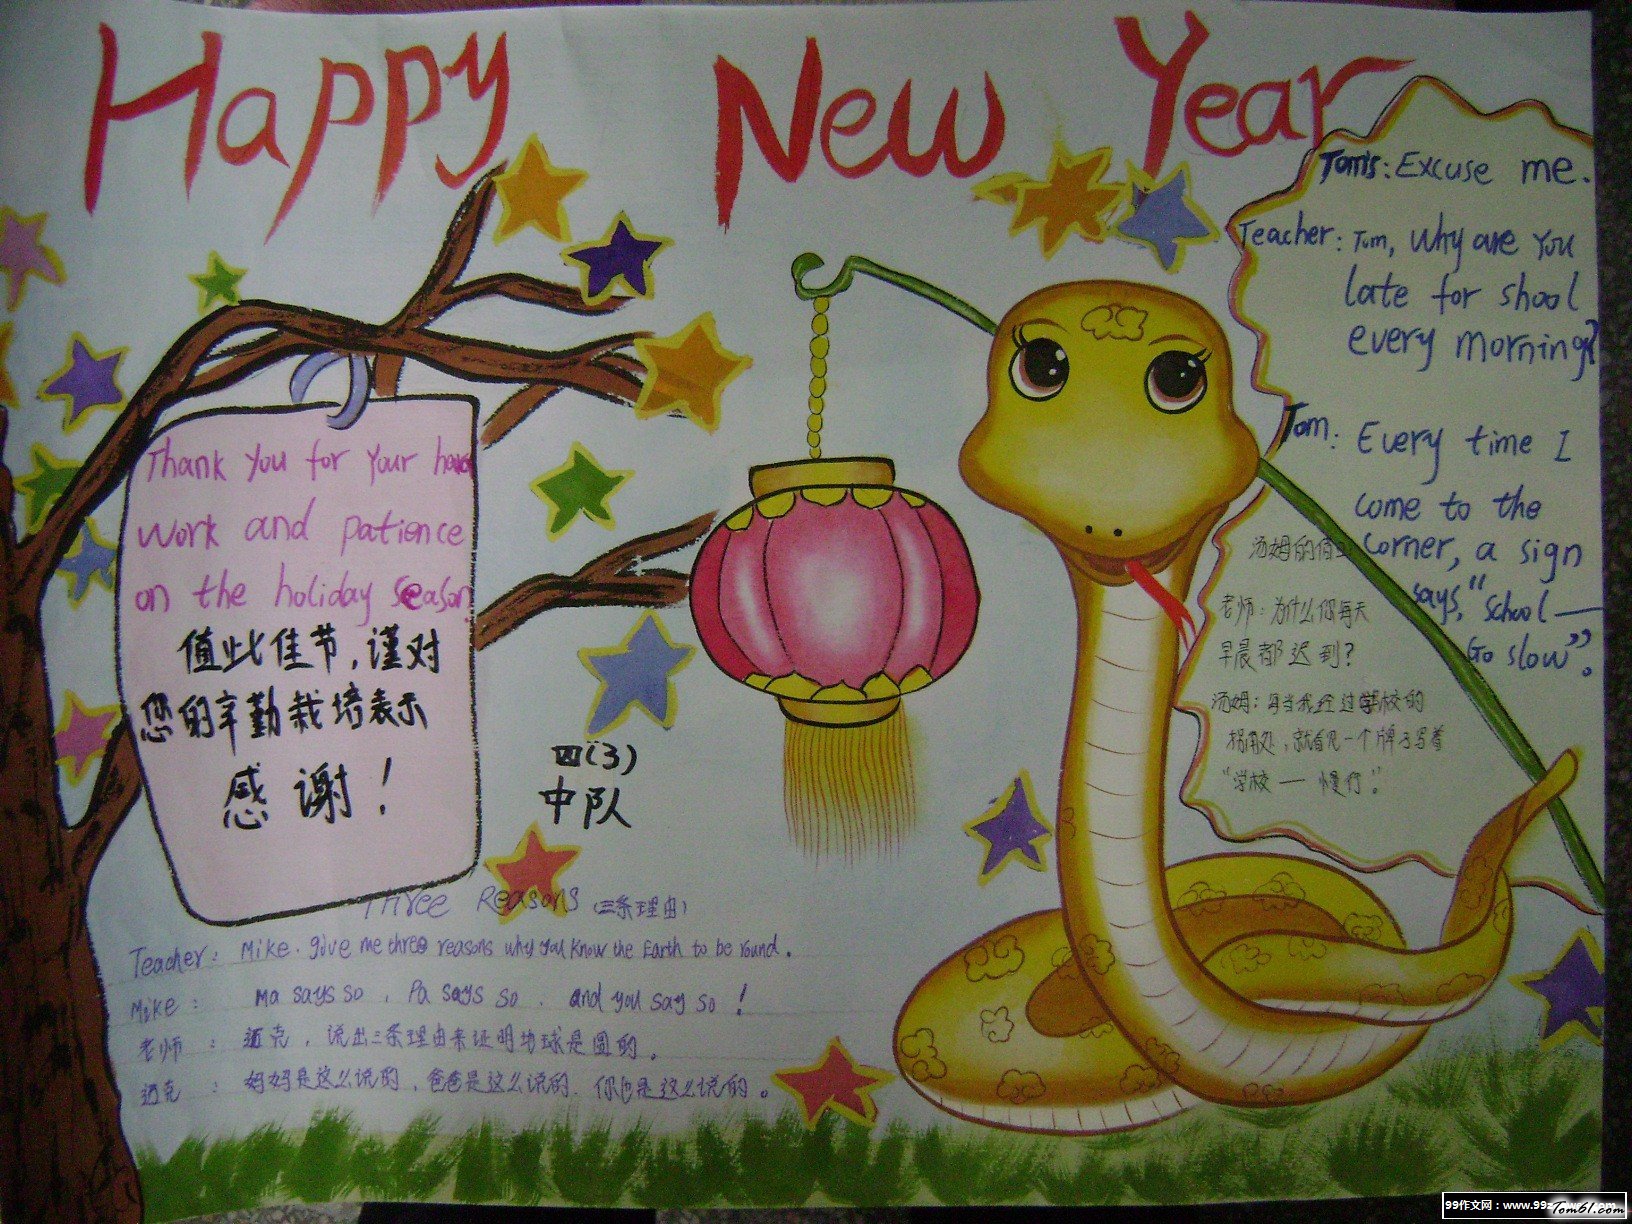 Happy New Year
Thank you for your
work and patience
on the holiday season
值此佳节,谨对
您的辛勤栽培表示
感谢!
四(3)
中队
Tom's: Excuse me.
Teacher: Tom, Why are you
late for shool
every morning?
Tom: Every time I
come to the
corner, a sign
says, "School—
Go slow".
汤姆的
老师:为什么你每天
早晨都迟到?
汤姆:每当我经过学校的
拐角处,就看见一个牌子写着
"学校—慢行".
Three Reasons (三条理由)
Teacher: Mike. give me three reasons why you know the Earth to be round.
Mike: Ma says so, Pa says so. and you say so!
老师:迈克,说出三条理由来证明地球是圆的。
迈克:妈妈是这么说的,爸爸是这么说的.你也是这么说的。
99作文网:www.99z
Tom61.com